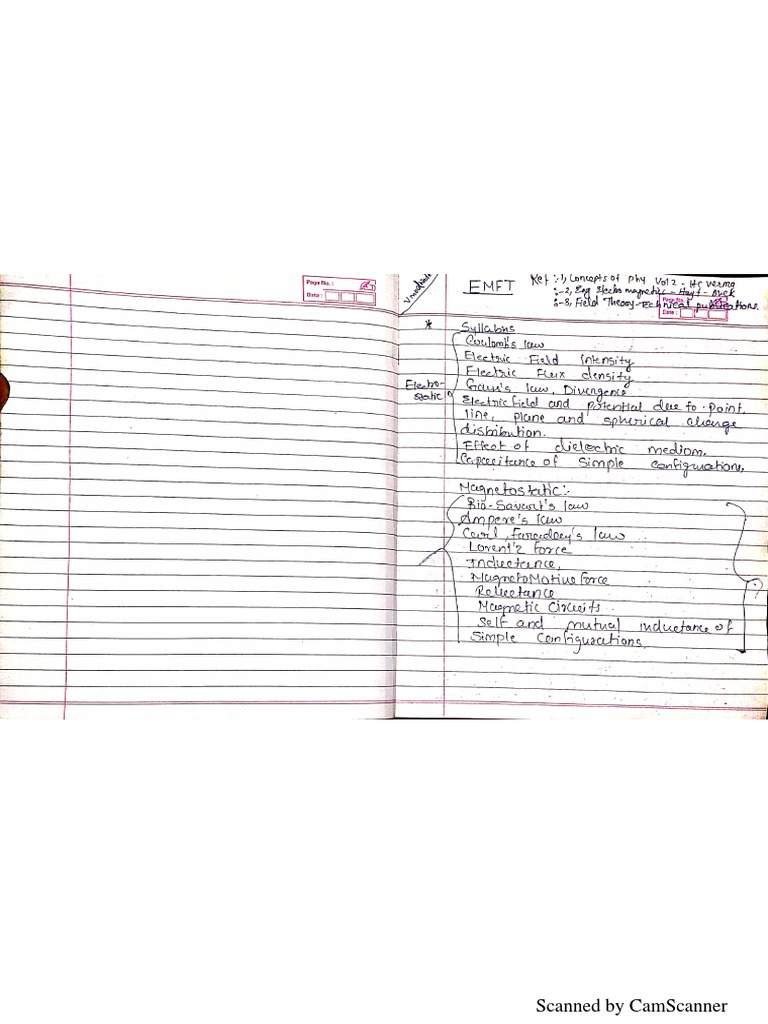 Page No. :
Date :
EMFT
Ref :- 1, Concepts of Phy Vol 2 - HC Verma
:- 2, Eng Electro magnetic - Hayt - Buck
:- 3, Field Theory - Technical publications.
Page No.
Date :
* Syllabus
Coulomb's law
Electric Field intensity
Electric Flux density
Gauss's law, Divergence
Electro-
static
Electric field and potential due to point,
line, plane and spherical charge
distribution.
Effect of dielectric medium.
Capacitance of simple configuration.
Magnetostatic :-
Bio-Savart's law
Ampere's law
Curl, Faraday's law
Lorent'z force
Inductance,
MagnetoMotive force
Reluctance
Magnetic Circuits
Self and mutual inductance of
Simple Configurations.
Scanned by CamScanner